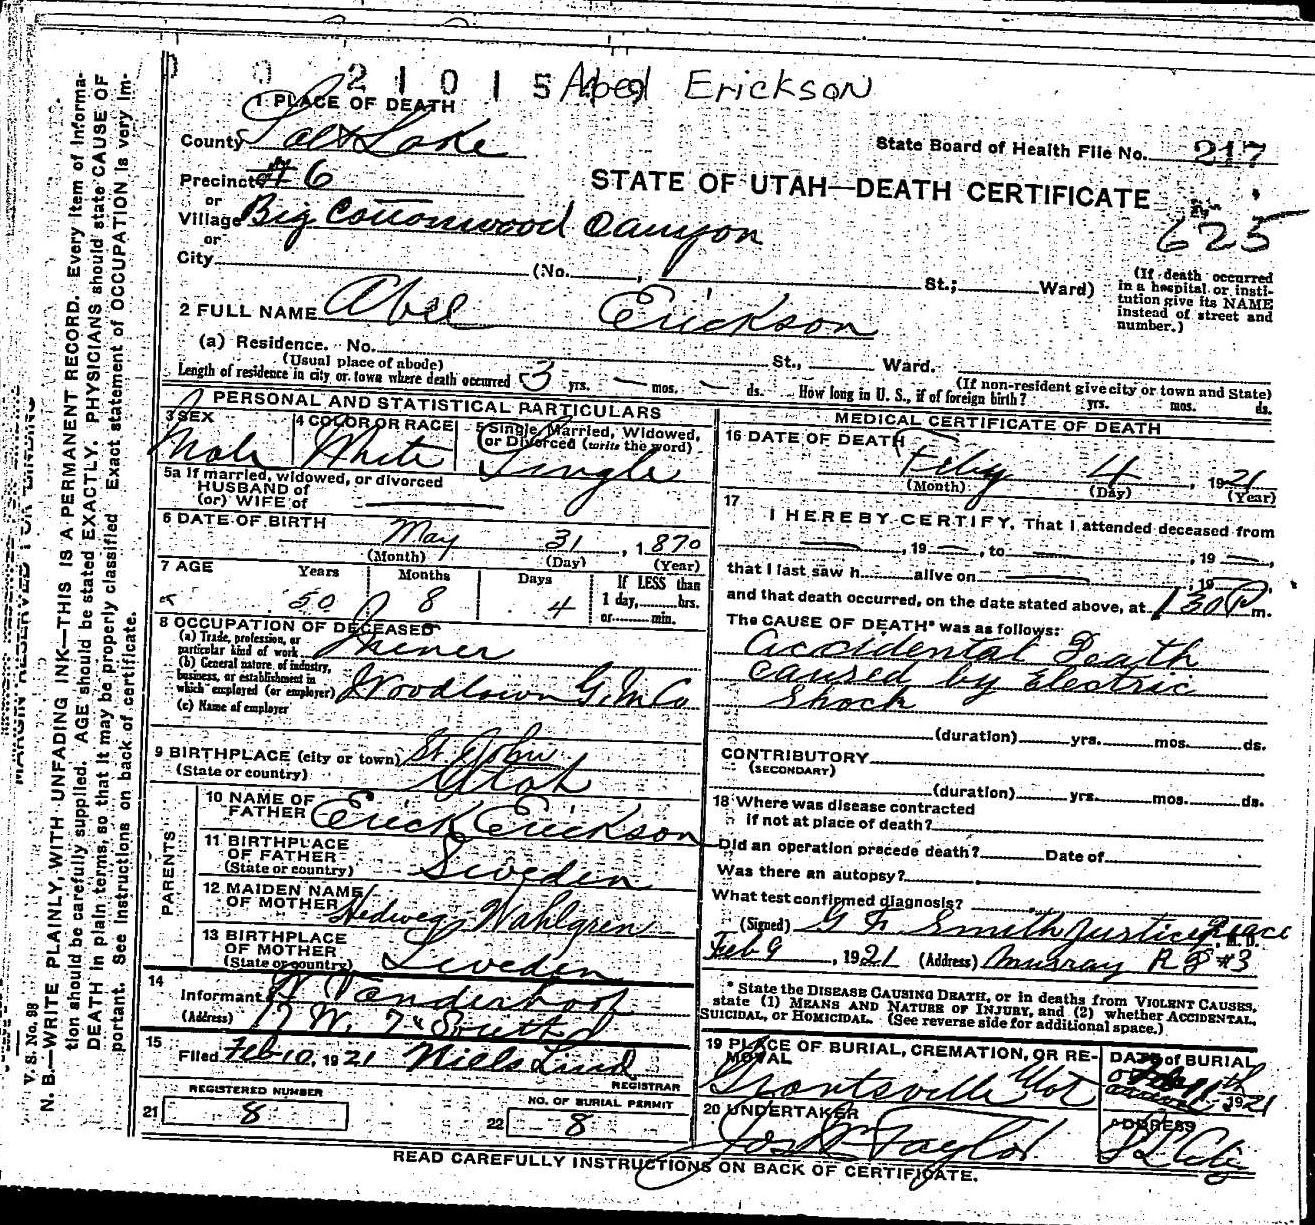 2 1 0 1 5 Abel Erickson
1 PLACE OF DEATH
County Salt Lake
State Board of Health File No. 217
Precinct #6
or
STATE OF UTAH—DEATH CERTIFICATE
625
Village Big Cottonwood Canyon
or
City (No. , St.; Ward)
(If death occurred in a hospital or institution give its NAME instead of street and number.)
2 FULL NAME Abel Erickson
(a) Residence. No. St., Ward.
(Usual place of abode) (If non-resident give city or town and State)
Length of residence in city or town where death occurred 3 yrs. — mos. — ds. How long in U. S., if of foreign birth? yrs. mos. ds.
PERSONAL AND STATISTICAL PARTICULARS
3 SEX 4 COLOR OR RACE 5 Single, Married, Widowed, or Divorced (write the word)
Male White Single
5a If married, widowed, or divorced
HUSBAND of
(or) WIFE of
6 DATE OF BIRTH
May 31, 1870
(Month) (Day) (Year)
7 AGE Years Months Days If LESS than
1 day, hrs.
or min.
50 8 4
8 OCCUPATION OF DECEASED
(a) Trade, profession, or particular kind of work Miner
(b) General nature of industry, business, or establishment in which employed (or employer) Woodlawn G. M Co
(c) Name of employer
9 BIRTHPLACE (city or town) St. John
(State or country) Utah
PARENTS
10 NAME OF FATHER Erick Erickson
11 BIRTHPLACE OF FATHER
(State or country) Sweden
12 MAIDEN NAME OF MOTHER Hedweg Wahlgren
13 BIRTHPLACE OF MOTHER
(State or country) Sweden
14
Informant Vanderhoof
(Address) 17 W. 7 South
15
Filed Feb 10, 1921 Niels Lind
REGISTRAR
REGISTERED NUMBER
21 8
NO. OF BURIAL PERMIT
22 8
MEDICAL CERTIFICATE OF DEATH
16 DATE OF DEATH
Feby 4, 1921
(Month) (Day) (Year)
17
I HEREBY CERTIFY, That I attended deceased from
, 19 , to , 19 ,
that I last saw h alive on , 19
and that death occurred, on the date stated above, at 1 30 P m.
The CAUSE OF DEATH* was as follows:
Accidental Death
caused by Electric
Shock
(duration) yrs. mos. ds.
CONTRIBUTORY
(SECONDARY)
(duration) yrs. mos. ds.
18 Where was disease contracted
if not at place of death?
Did an operation precede death? Date of
Was there an autopsy?
What test confirmed diagnosis?
(Signed) G F Smith Justice Peace M. D.
Feb 9, 1921 (Address) Murray R #3
* State the DISEASE CAUSING DEATH, or in deaths from VIOLENT CAUSES,
state (1) MEANS AND NATURE OF INJURY, and (2) whether ACCIDENTAL,
SUICIDAL, or HOMICIDAL. (See reverse side for additional space.)
19 PLACE OF BURIAL, CREMATION, OR REMOVAL
Grantsville Utah
DATE of BURIAL
11th 1921
20 UNDERTAKER
Jos Wm Taylor
ADDRESS
S L City
READ CAREFULLY INSTRUCTIONS ON BACK OF CERTIFICATE.
MARGIN RESERVED FOR BINDING
V. S. No. 98
N. B.—WRITE PLAINLY, WITH UNFADING INK—THIS IS A PERMANENT RECORD. Every item of information should be carefully supplied. AGE should be stated EXACTLY. PHYSICIANS should state CAUSE OF DEATH in plain terms, so that it may be properly classified. Exact statement of OCCUPATION is very important. See instructions on back of certificate.